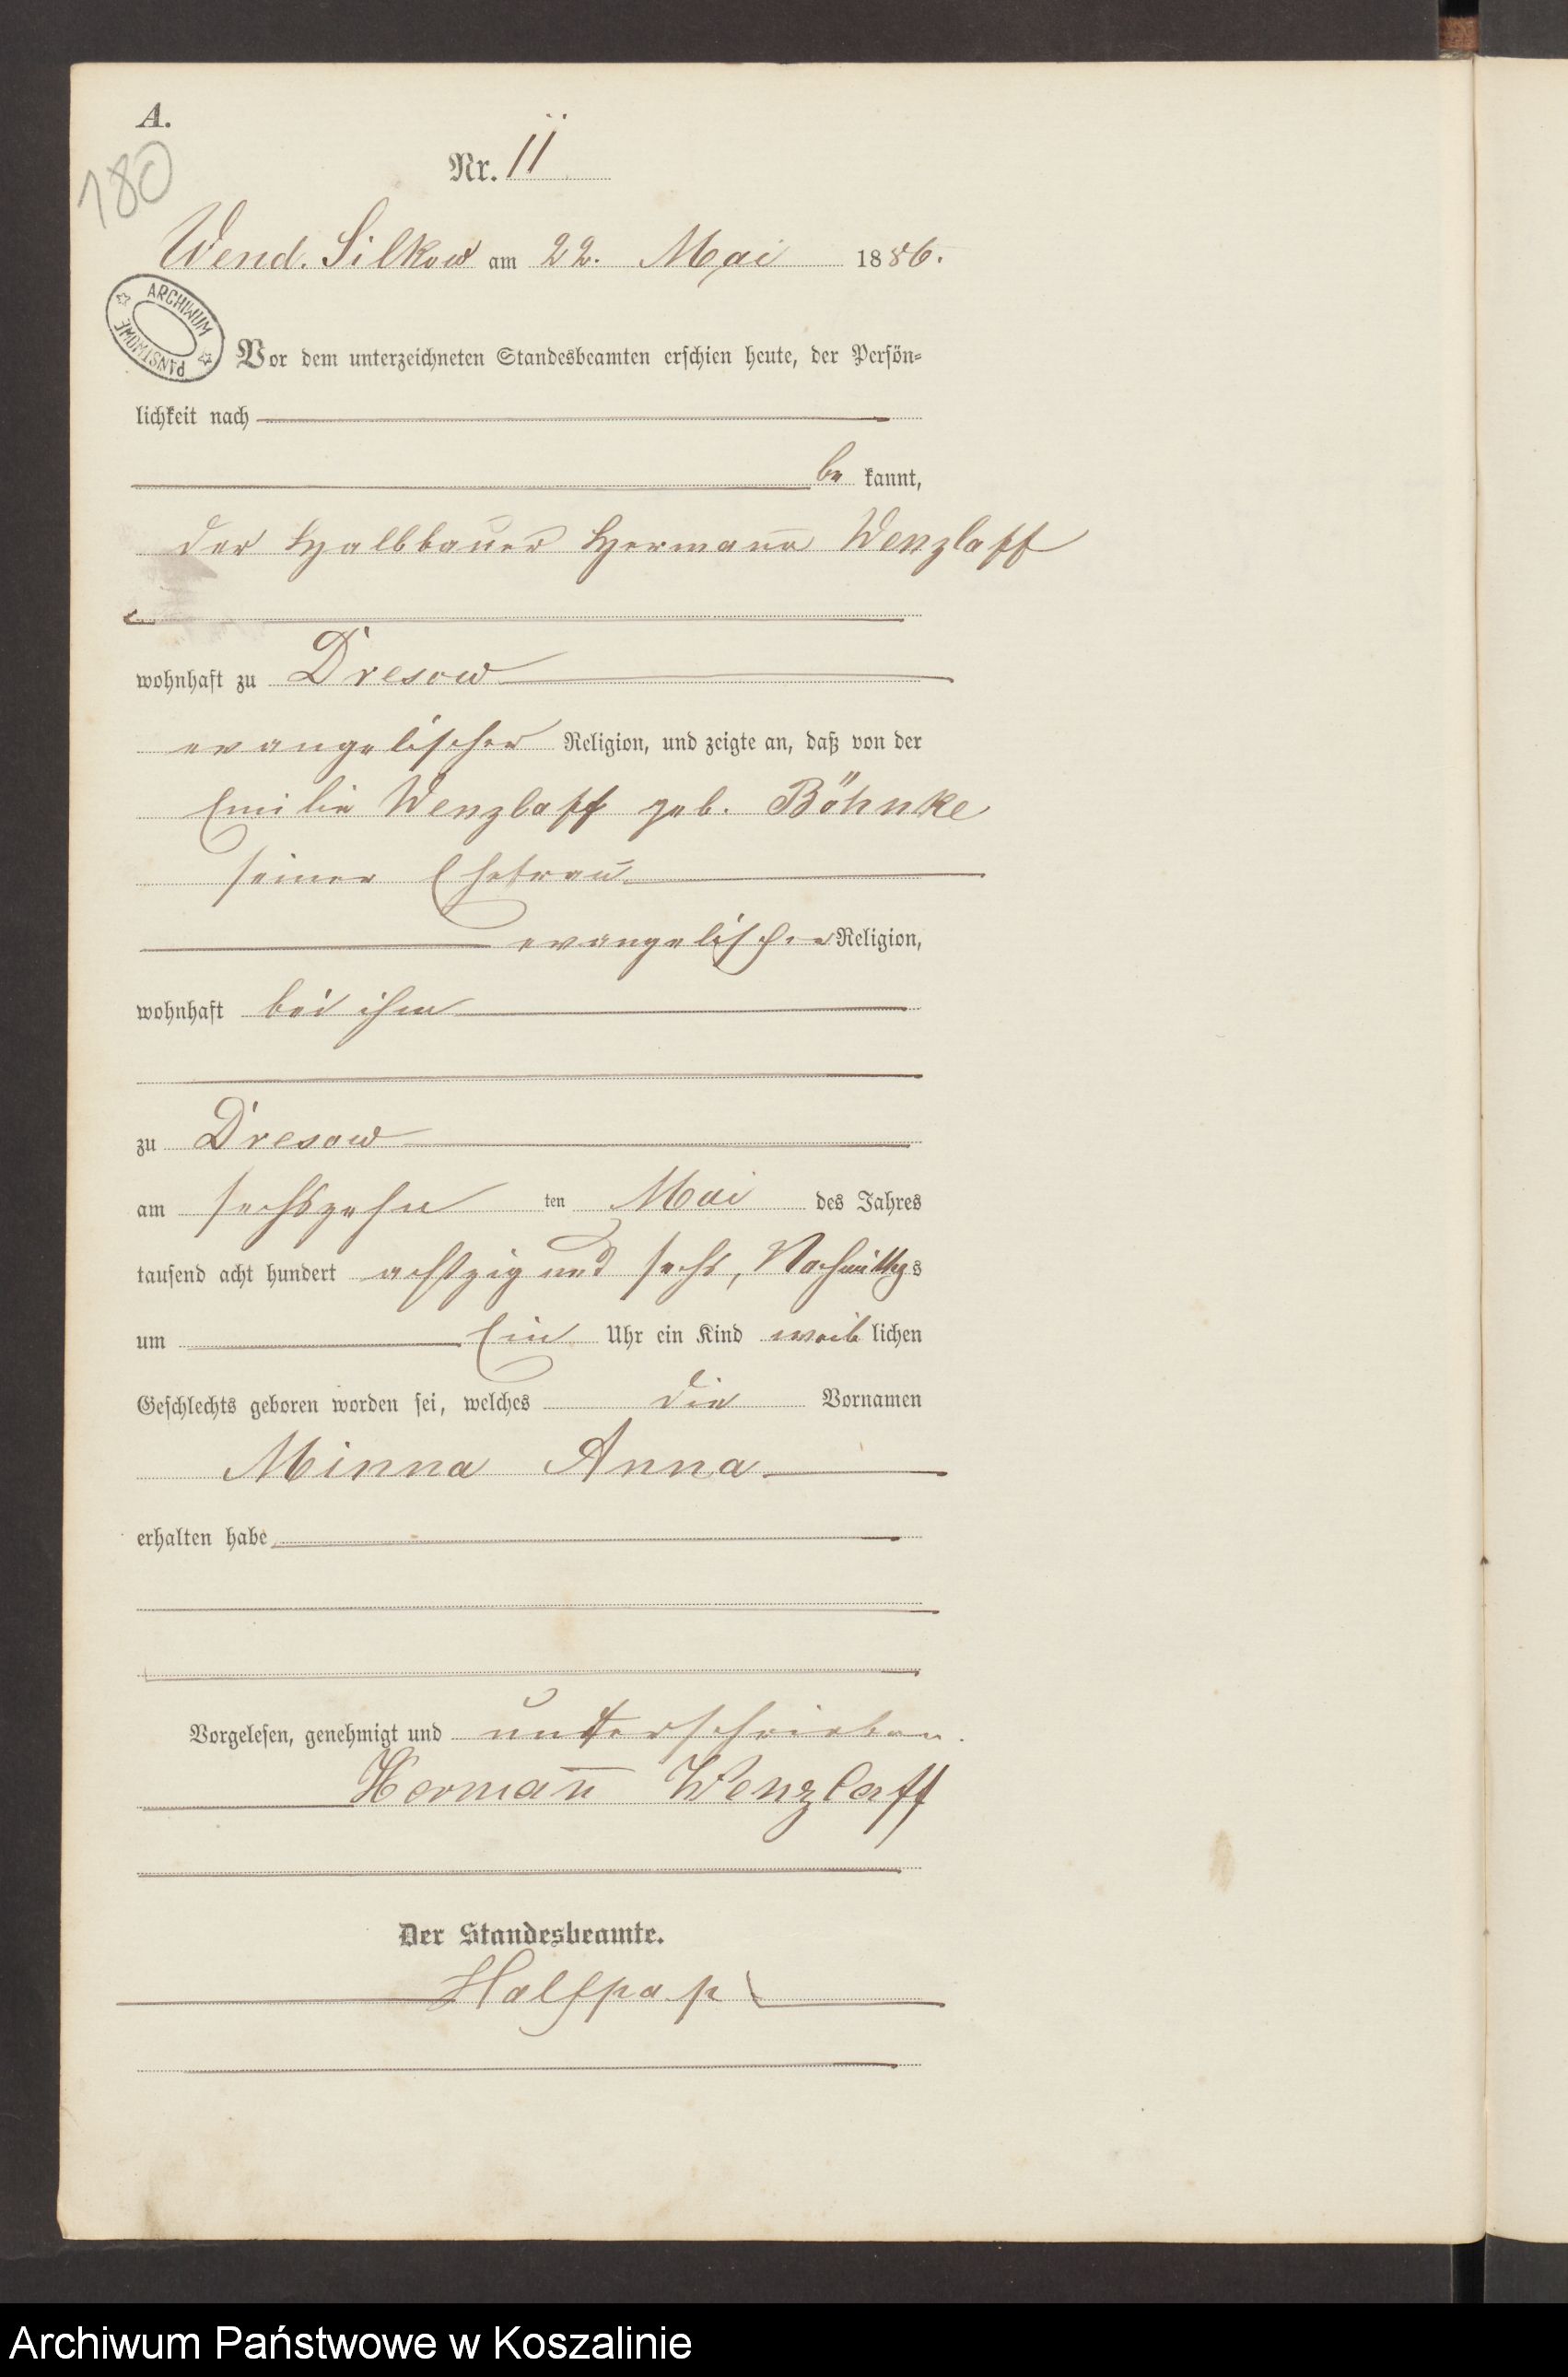 A.
180
Nr. 11
Wend. Silkow am 22. Mai 1886.
ARCHIWUM PAŃSTWOWE
Vor dem unterzeichneten Standesbeamten erschien heute, der Persön-
lichkeit nach
be kannt,
der Halbbauer Hermann Wenzlaff
wohnhaft zu Dresow
evangelischer Religion, und zeigte an, daß von der
Emilie Wenzlaff geb. Böhnke
seiner Ehefrau
evangelischer Religion,
wohnhaft bei ihm
zu Dresow
am sechszehn ten Mai des Jahres
tausend acht hundert achtzig und sechs, Nachmittags
um Ein Uhr ein Kind weib lichen
Geschlechts geboren worden sei, welches die Vornamen
Minna Anna
erhalten habe
Vorgelesen, genehmigt und unterschrieben.
Herman̄ Wenzlaff
Der Standesbeamte.
Halfpap
Archiwum Państwowe w Koszalinie